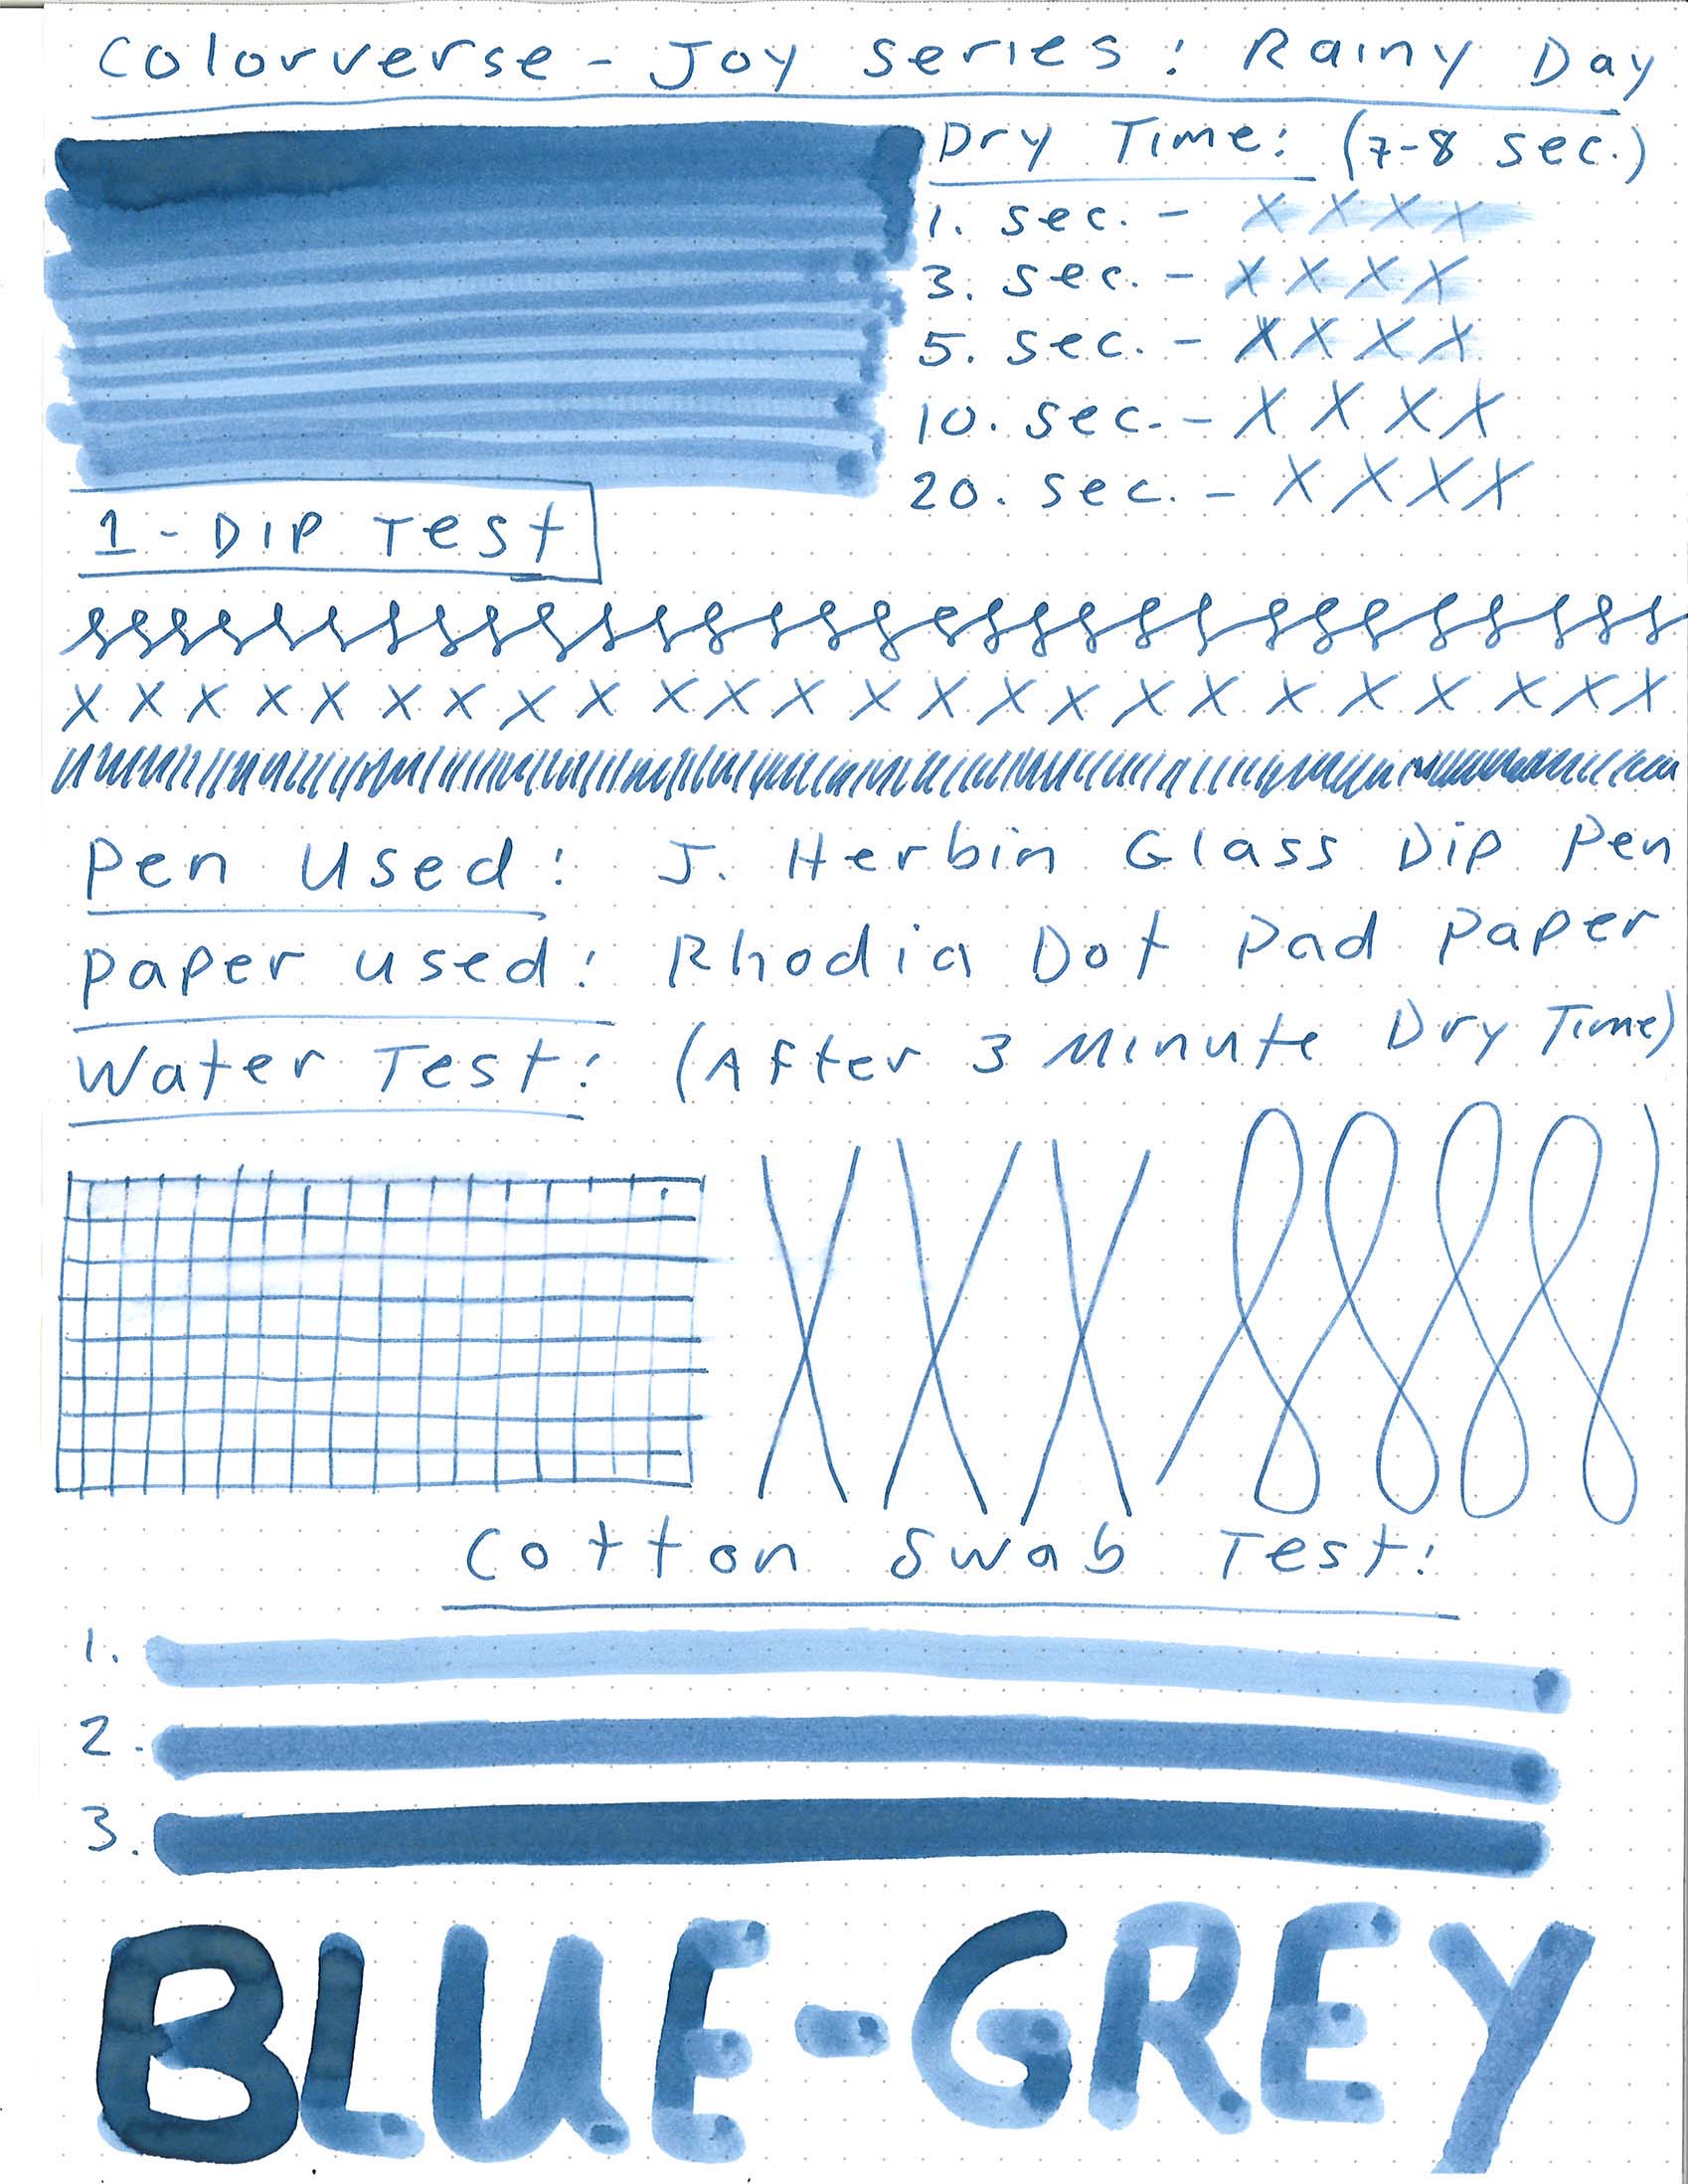 Colorverse - Joy Series: Rainy Day
Dry Time: (7-8 sec.)
1. sec. - X X X X
3. sec. - X X X X
5. sec. - X X X X
10. sec. - X X X X
20. sec. - X X X X
1 - DIP Test
X X X X X X X X X X X X X X X X X X X X X X X X
Pen Used: J. Herbin Glass Dip Pen
Paper used: Rhodia Dot Pad Paper
Water Test: (After 3 Minute Dry Time)
X X X
Cotton Swab Test:
1.
2.
3.
BLUE-GREY